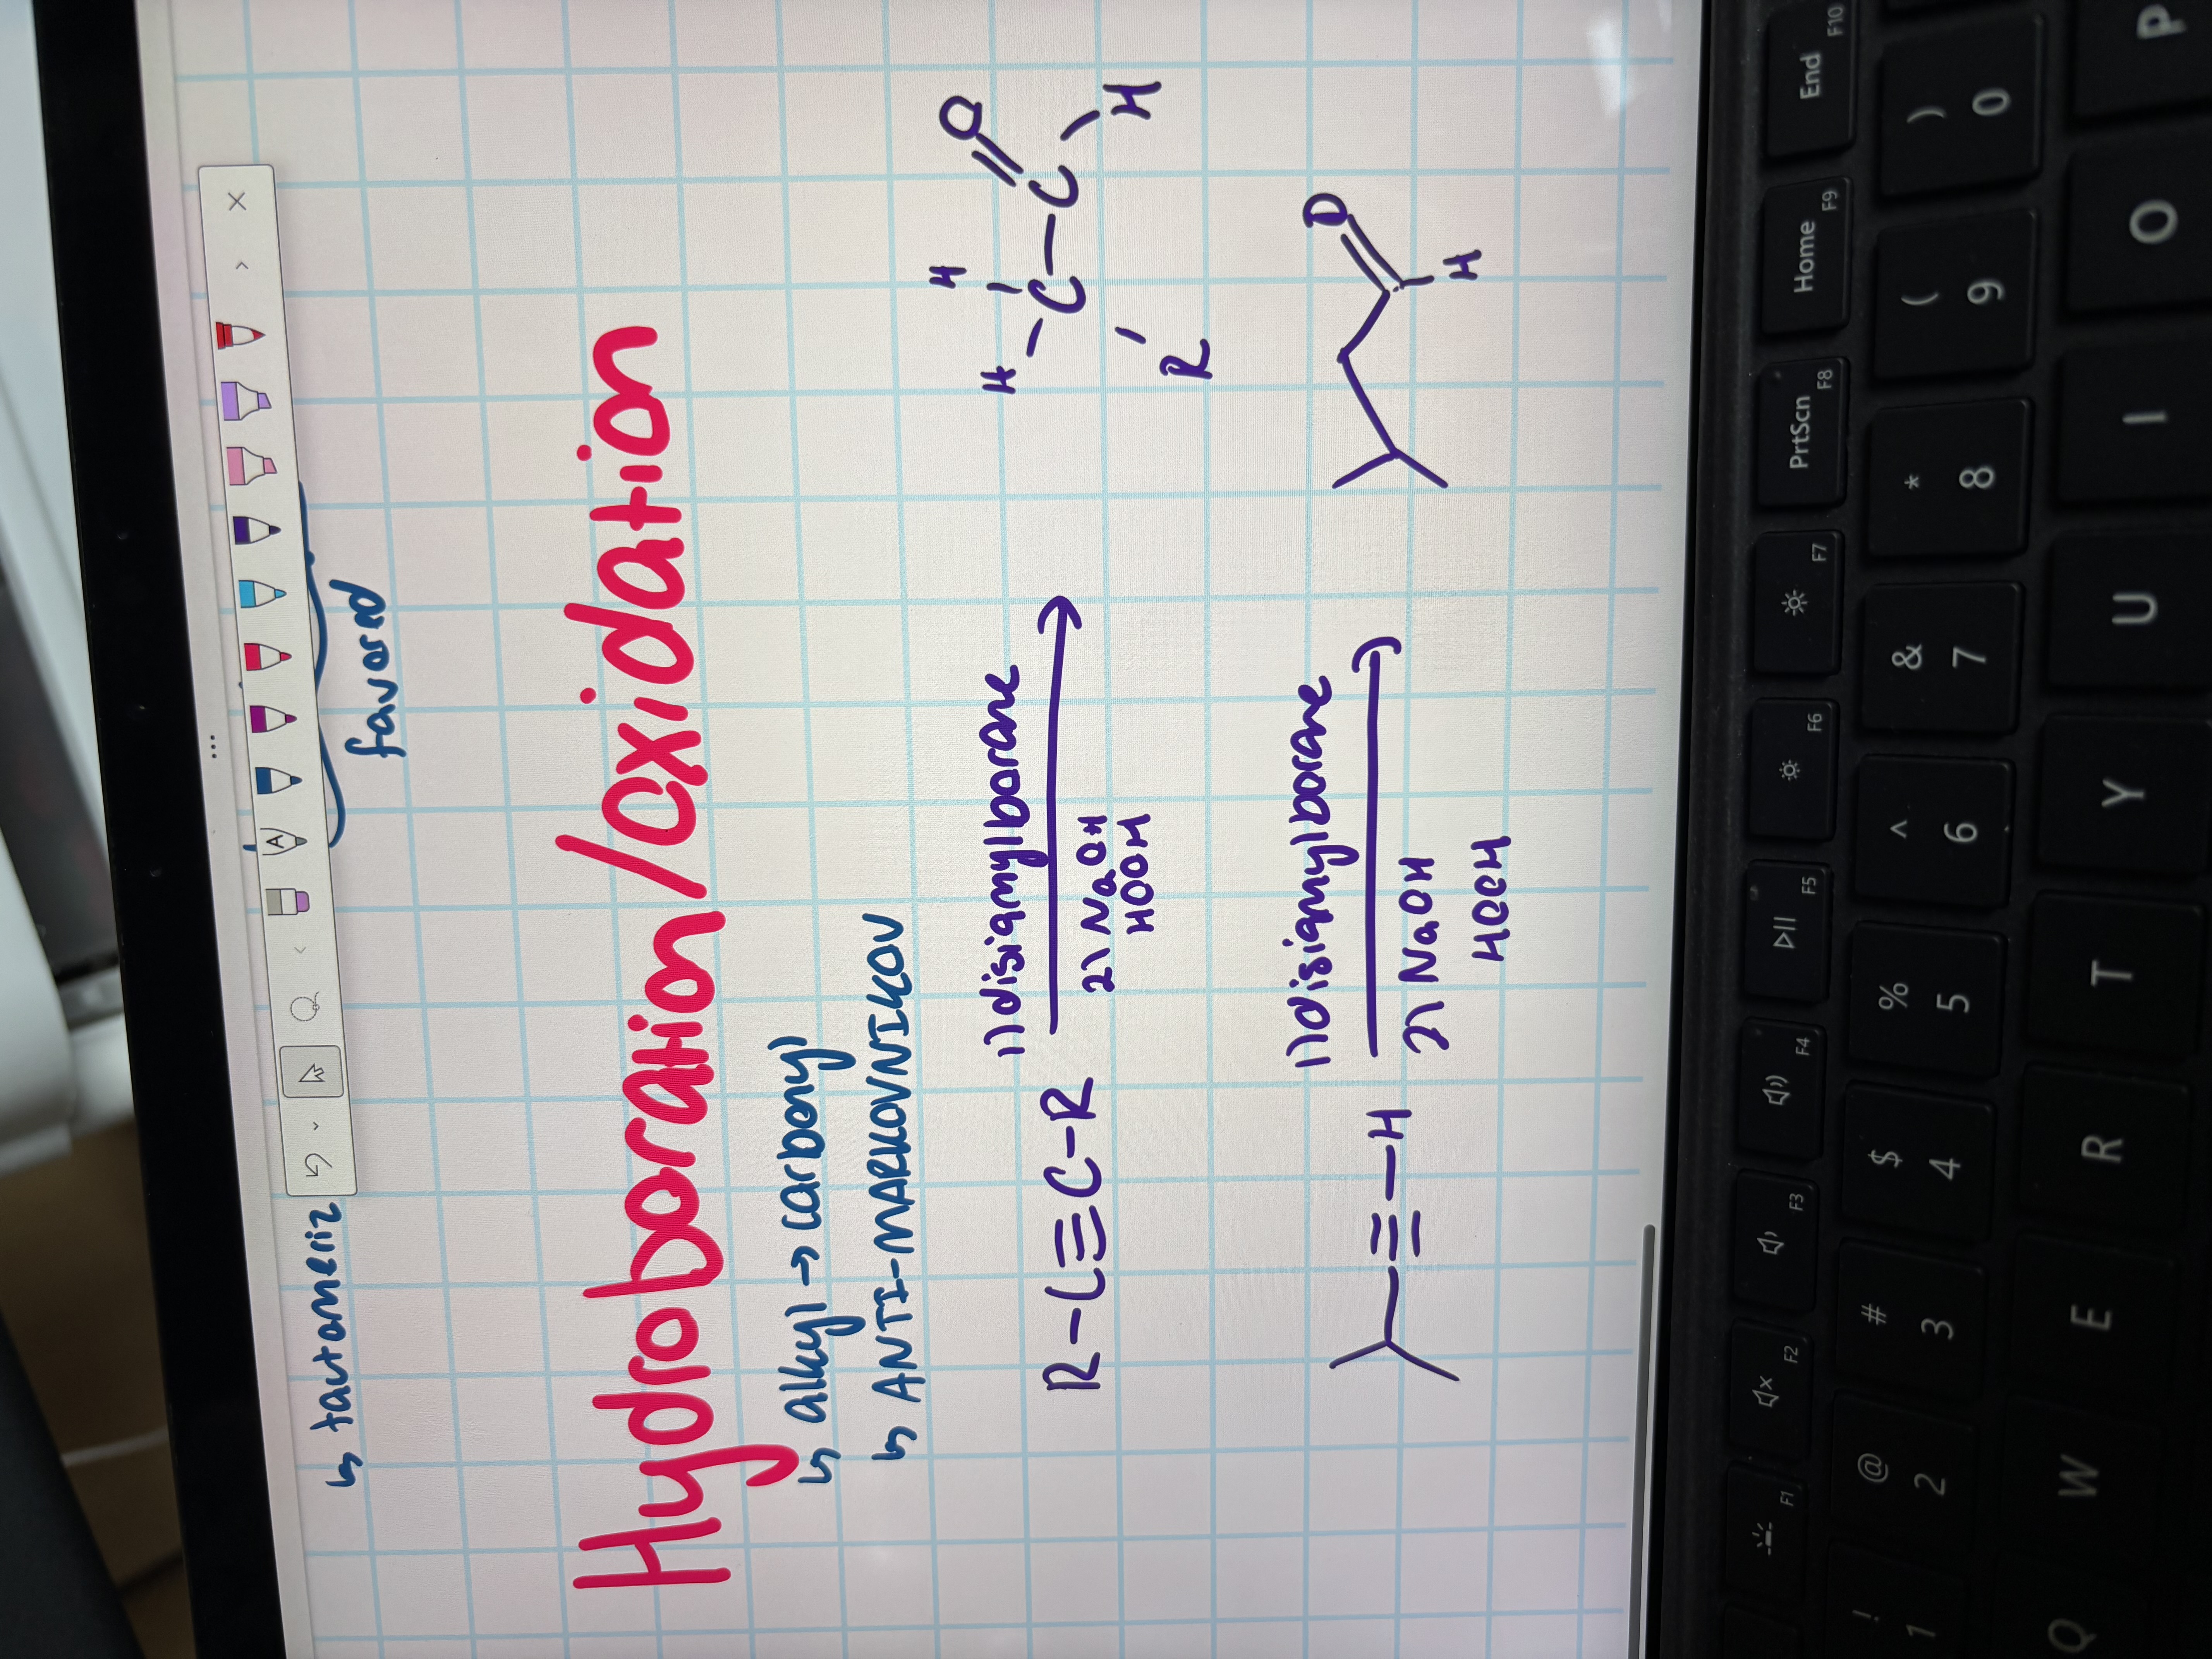 ↳ tautomeriz
favored
Hydroboration/oxidation
↳ alkyl → carbonyl
↳ ANTI-MARKOVNIKOV
R-C≡C-R
1) disiamylborane
2) NaOH
HOOH
H
H-C-C-H
O
R
≡-H
1) disiamylborane
2) NaOH
HOOH
O
H
A
F1
F2
F3
F4
F5
F6
F7
F8
PrtScn
F9
Home
F10
End
! 1
@ 2
# 3
$ 4
% 5
^ 6
& 7
* 8
( 9
) 0
Q W E R T Y U I O P